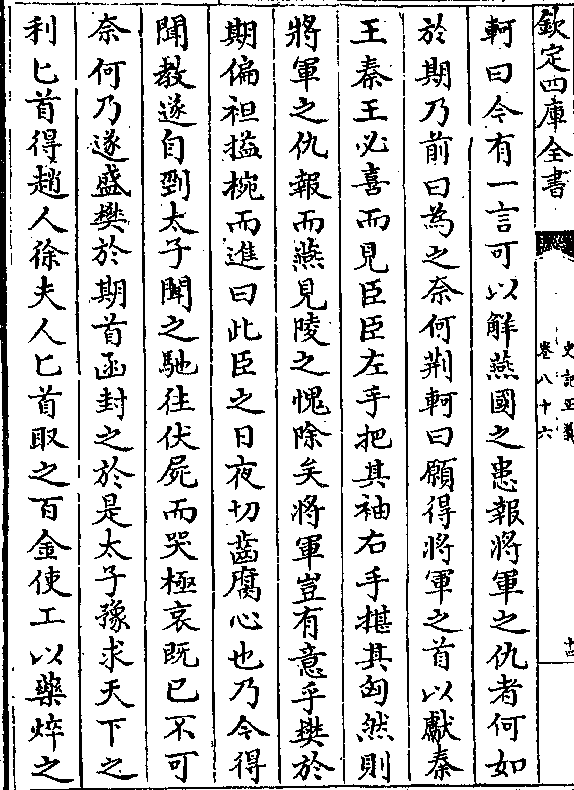 欽定四庫全書
史記正義
卷八十六
十四
軻曰今有一言可以解燕國之患報將軍之仇者何如
於期乃前曰為之奈何荆軻曰願得將軍之首以獻秦
王秦王必喜而見臣臣左手把其袖右手揕其匈然則
將軍之仇報而燕見陵之愧除矣將軍豈有意乎樊於
期偏袒搤椀而進曰此臣之日夜切齒腐心也乃今得
聞教遂自剄太子聞之馳往伏屍而哭極哀既已不可
奈何乃遂盛樊於期首函封之於是太子豫求天下之
利匕首得趙人徐夫人匕首取之百金使工以藥焠之